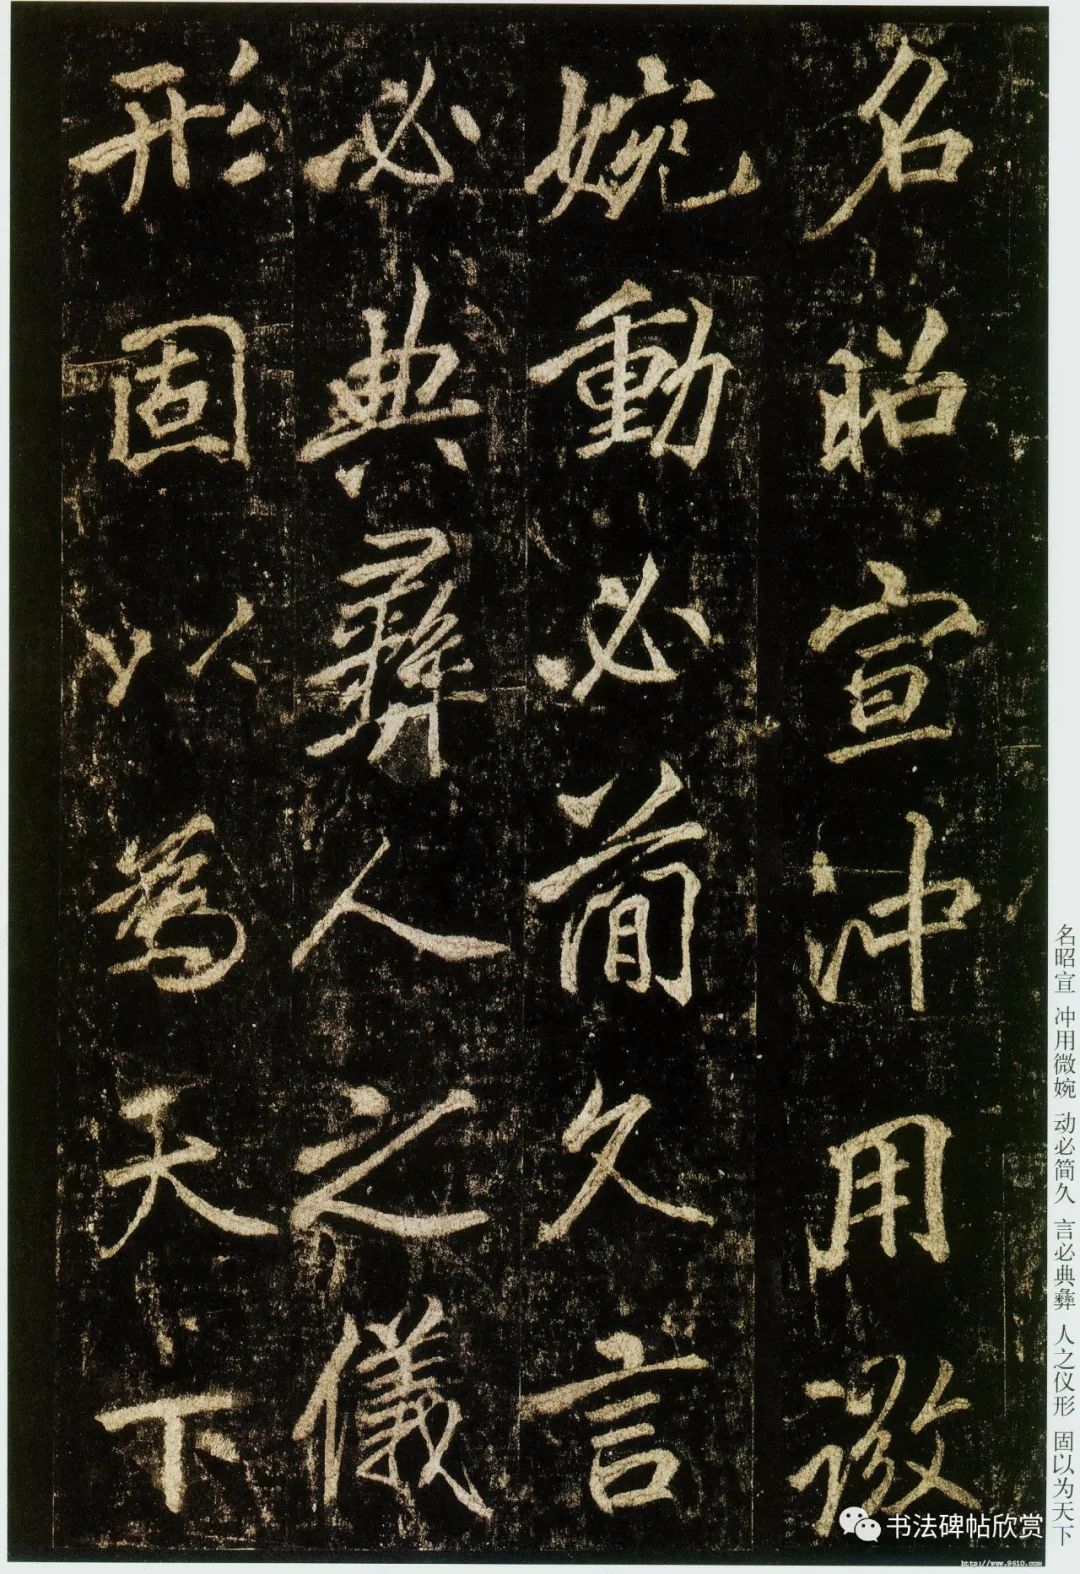 名昭宣冲用微
婉動必簡久言
必典彝人之儀
形固以為天下
名昭宣 冲用微婉 动必简久 言必典彝 人之仪形 固以为天下
书法碑帖欣赏
http://www.9610.com